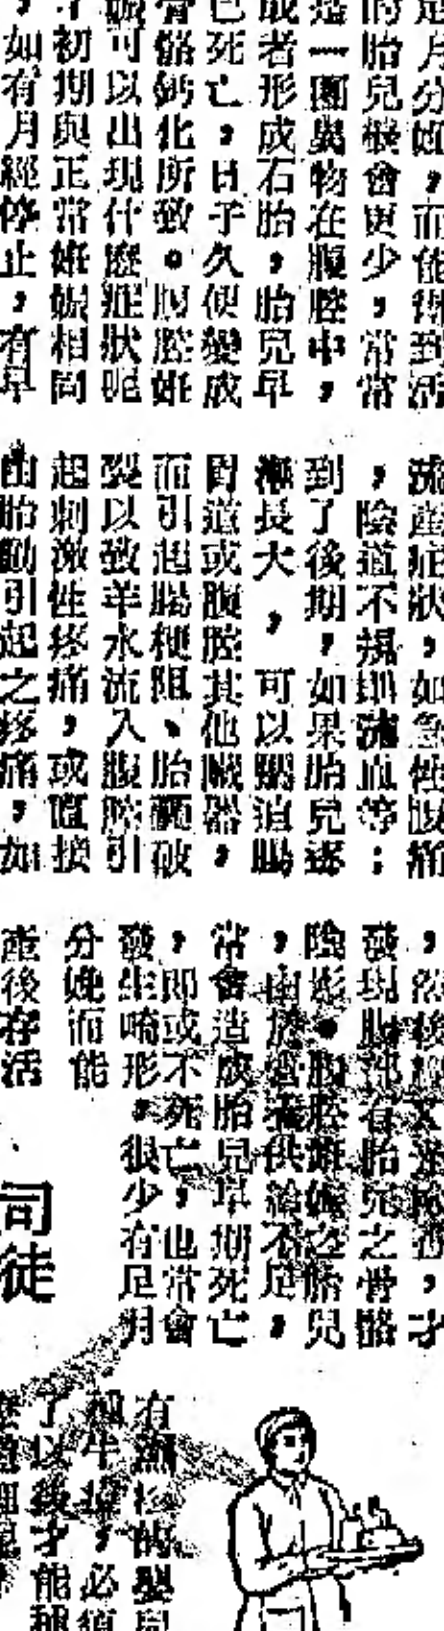 足月分娩,而能得到活
的胎兒機會更少,常常
是一團異物在腹腔中,
或者形成石胎,胎兒早
已死亡,日子久便變成
骨骼鈣化所致。腹腔妊
娠可以出現什麼症狀呢
初期與正常妊娠相同
,如有月經停止,有早
流產症狀,如急性腹痛
,陰道不規則流血等;
到了後期,如果胎兒逐
漸長大,可以壓迫腸
胃道或腹腔其他臟器,
而引起腸梗阻、胎囊破
裂以致羊水流入腹腔引
起刺激性疼痛,或直接
由胎動引起之疼痛,如
,然後X光檢查,才
發現腹部有胎兒之骨骼
陰影。腹腔妊娠之胎兒
,由於營養供給不足,
常會造成胎兒早期死亡
,即或不死亡,也常會
發生畸形。很少有足月
分娩而能
產後存活
司徒
有濕疹的嬰兒
種牛痘,必須
了以後才能種